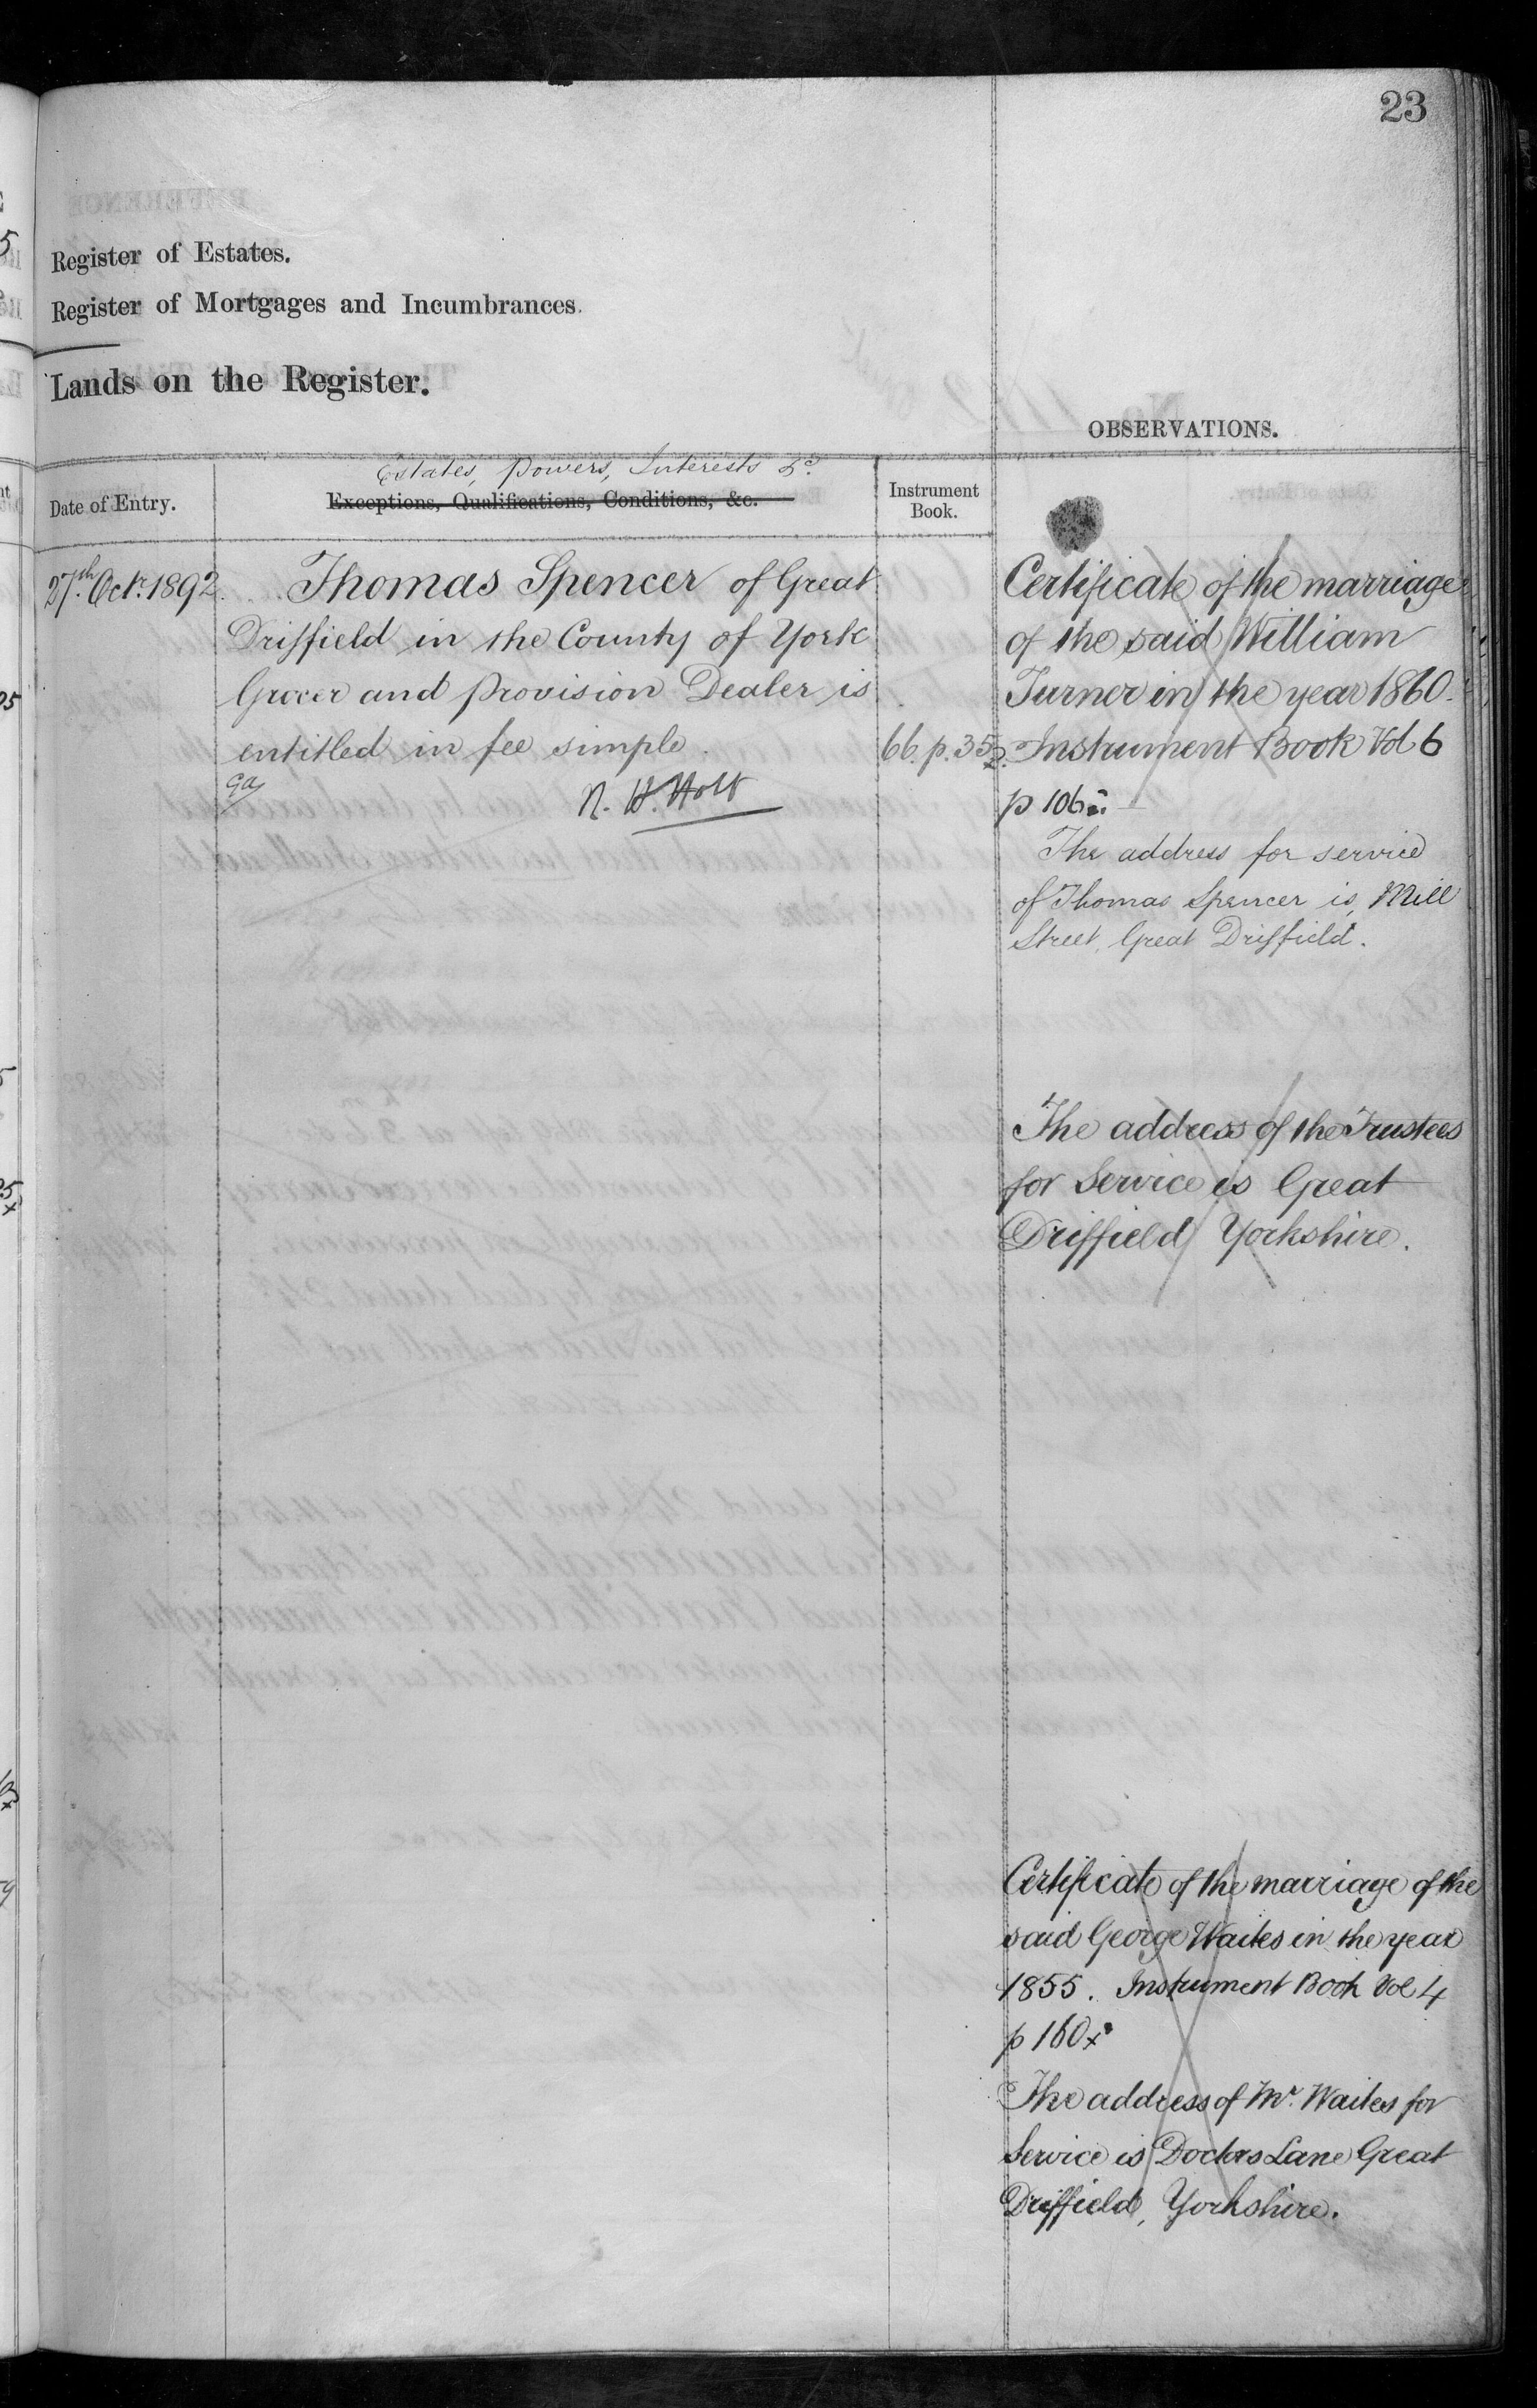 23
Register of Estates.
Register of Mortgages and Incumbrances.
Lands on the Register.
OBSERVATIONS.
Estates, Powers, Interests &c.
Date of Entry.
Exceptions, Qualifications, Conditions, &c.
Instrument
Book.
27th. Octr. 1892.
Thomas Spencer of Great
Driffield in the County of York
Grocer and Provision Dealer is
entitled in fee simple.
66. p. 352.
Certificate of the marriage
of the said William
Turner in the year 1860.
Instrument Book Vol 6
p 106
The address for service
of Thomas Spencer is, Mill
Street, Great Driffield.
The address of the Trustees
for Service is Great
Driffield Yorkshire.
Certificate of the marriage of the
said George Waites in the year
1855. Instrument Book Vol 4
p 160x
The address of Mr. Waites for
Service is Doctors Lane Great
Driffield, Yorkshire.